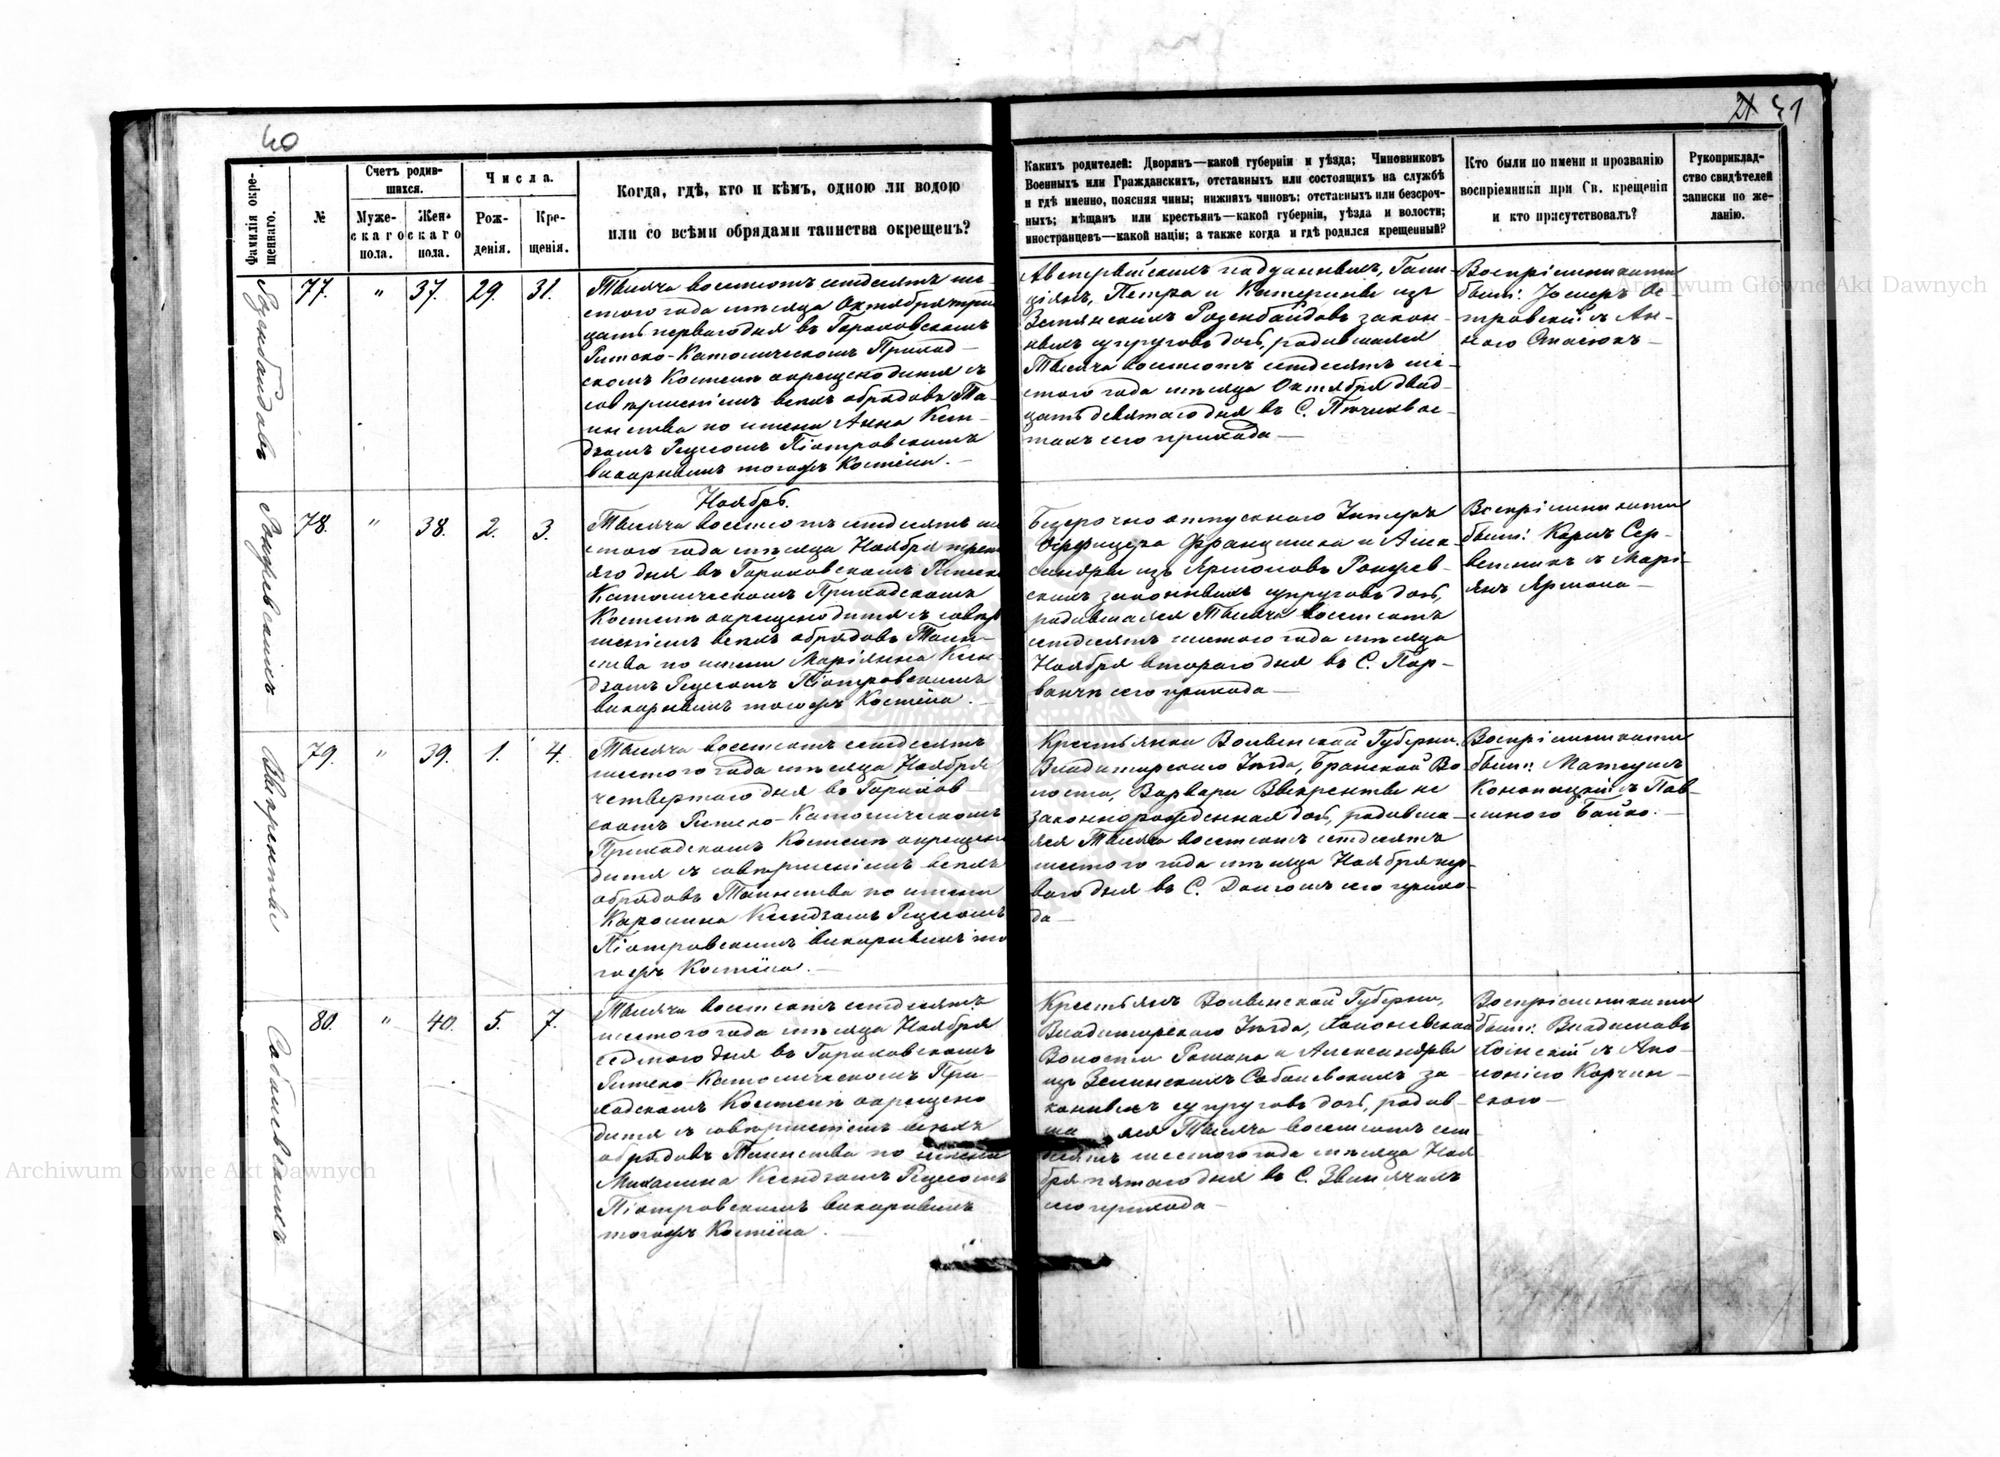 40
21 41
Фамилія окре-
щеннаго.
№
Счетъ родив-
шихся.
Муже-
скаго
пола.
Жен-
скаго
пола.
Числа.
Рож-
денія.
Кре-
щенія.
Когда, гдѣ, кто и кѣмъ, одною ли водою
или со всѣми обрядами таинства окрещенъ?
Какихъ родителей: Дворянъ—какой губерніи и уѣзда; Чиновниковъ
Военныхъ или Гражданскихъ, отставныхъ или состоящихъ на службѣ
и гдѣ именно, поясняя чины; нижнихъ чиновъ: отставныхъ или безсроч-
ныхъ; мѣщанъ или крестьянъ—какой губерніи, уѣзда и волости;
иностранцевъ—какой націи; а также когда и гдѣ родился крещенный?
Кто были по имени и прозванію
воспріемники при Св. крещеніи
и кто присутствовалъ?
Рукоприклад-
ство свидѣтелей
записки по же-
ланію.
77. " 37. 29. 31.
Тысяча восемсотъ семдесятъ ше-
стого года мѣсяца Октября трид
цать перваго дня въ Гороховскомъ
Римско-Католическомъ Приход-
скомъ Костелѣ окрещено дитя съ
совершеніемъ всѣхъ обрядовъ Та-
инства по имени Анна Ксен-
дзомъ Піотровскимъ
викарнымъ тогожъ Костёла.—
Австрійскихъ подданныхъ, Гали-
ціянъ, Петра и Катерины изъ
закон-
ныхъ супруговъ дочь, родившаяся
Тысяча восемсотъ семдесятъ ше-
стого года мѣсяца Октября двад-
цать девятаго дня въ С.
сего прихода—
Воспріемниками
были: съ Ан-
ною
78. " 38. 2. 3.
Ноябрь.
Тысяча восемсотъ семдесятъ ше
стого года мѣсяца Ноября треть
яго дня въ Гороховскомъ Римско
Католическомъ Приходскомъ
Костелѣ окрещено дитя съ совер
шеніемъ всѣхъ обрядовъ Таин-
ства по имени Маріянна Ксен-
дзомъ Піотровскимъ
викарнымъ тогожъ Костёла.—
Безсрочно отпускного Унтеръ
Офицера Францишка и Алек-
сандры изъ
законныхъ супруговъ дочь,
родившаяся Тысяча восемсотъ
семдесятъ шестого года мѣсяца
Ноября второго дня въ С. Пор-
ванчѣ сего прихода—
Воспріемниками
были: Кароль Сер-
съ Марі-
79. " 39. 1. 4.
Выкренты
Тысяча восемсотъ семдесятъ
шестого года мѣсяца Ноября
четвертого дня въ Горохов-
скомъ Римско-Католическомъ
Приходскомъ Костелѣ окрещено
дитя съ совершеніемъ всѣхъ
обрядовъ Таинства по имени
Каролина Ксендзомъ
Піотровскимъ викарнымъ то
гожъ Костёла.—
Крестьянки Волынской Губерніи,
Владимірскаго Уѣзда, Бранской Во
лости, Варвары Выкренты не
законнорожденная дочь, родивша-
яся Тысяча восемсотъ семдесятъ
шестого года мѣсяца Ноября пер-
вого дня въ С. сего прихо-
да—
Воспріемниками
были: Матеушъ
Конопацкій съ Пав-
линою Бойко.—
80. " 40. 5. 7.
Соболевскихъ
Тысяча восемсотъ семдесятъ
шестого года мѣсяца Ноября
седмого дня въ Гороховскомъ
Римско-Католическомъ При-
ходскомъ Костелѣ окрещено
дитя съ совершеніемъ всѣхъ
обрядовъ Таинства по имени
Михалина Ксендзомъ
Піотровскимъ викарнымъ
тогожъ Костёла.—
Крестьянъ Волынской Губерніи,
Владимірскаго Уѣзда,
Волости Романа и Александры
изъ Зелинскихъ Соболевскихъ за-
конныхъ супруговъ дочь, родив-
шаяся Тысяча восемсотъ сем
десятъ шестого года мѣсяца Ноя
бря пятого дня въ С. Звинячахъ
сего прихода—
Воспріемниками
были: Владиславъ
съ Апо-
лонією Корчин-
скою—
Archiwum Główne Akt Dawnych
Archiwum Główne Akt Dawnych